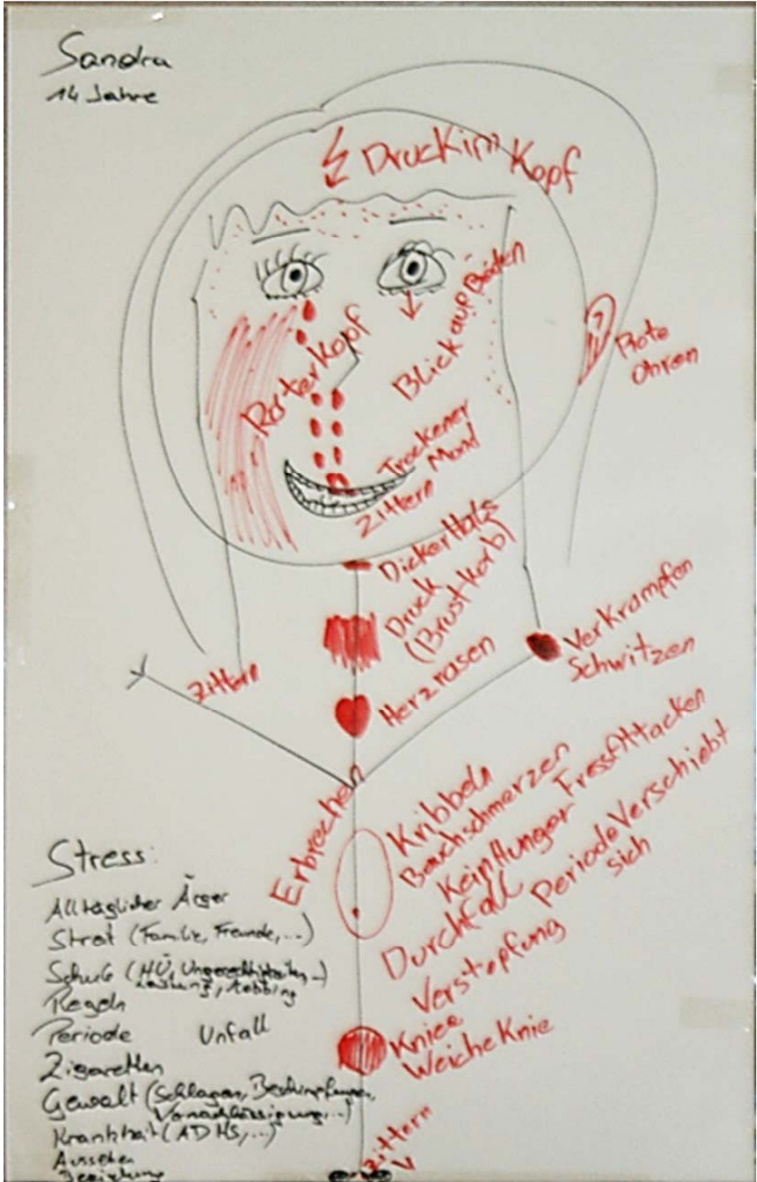 Sandra
14 Jahre
Druck im Kopf
Roter Kopf
Blick auf Boden
Rote
Ohren
Trockener
Mond
Zittern
Dicker Hals
Druck
(Brustkorb)
Herzrasen
Verkrampfen
Schwitzen
Zittern
Erbrechen
Kribbeln
Bauchschmerzen
Kein Hunger Fressattacken
Durchfall Periode Verschiebt
sich
Verstopfung
Kniee
Weiche Knie
Zittern
Stress:
Alltäglicher Ärger
Streit (Familie, Freunde, ...)
Schule (HÜ, Ungerechtigkeiten, ...)
Leistung, Mobbing
Regeln
Periode Unfall
Zigaretten
Gewalt (Schlagen, Beschimpfungen,
Vernachlässigung, ...)
Krankheit (ADHS, ...)
Aussehen
Beziehung